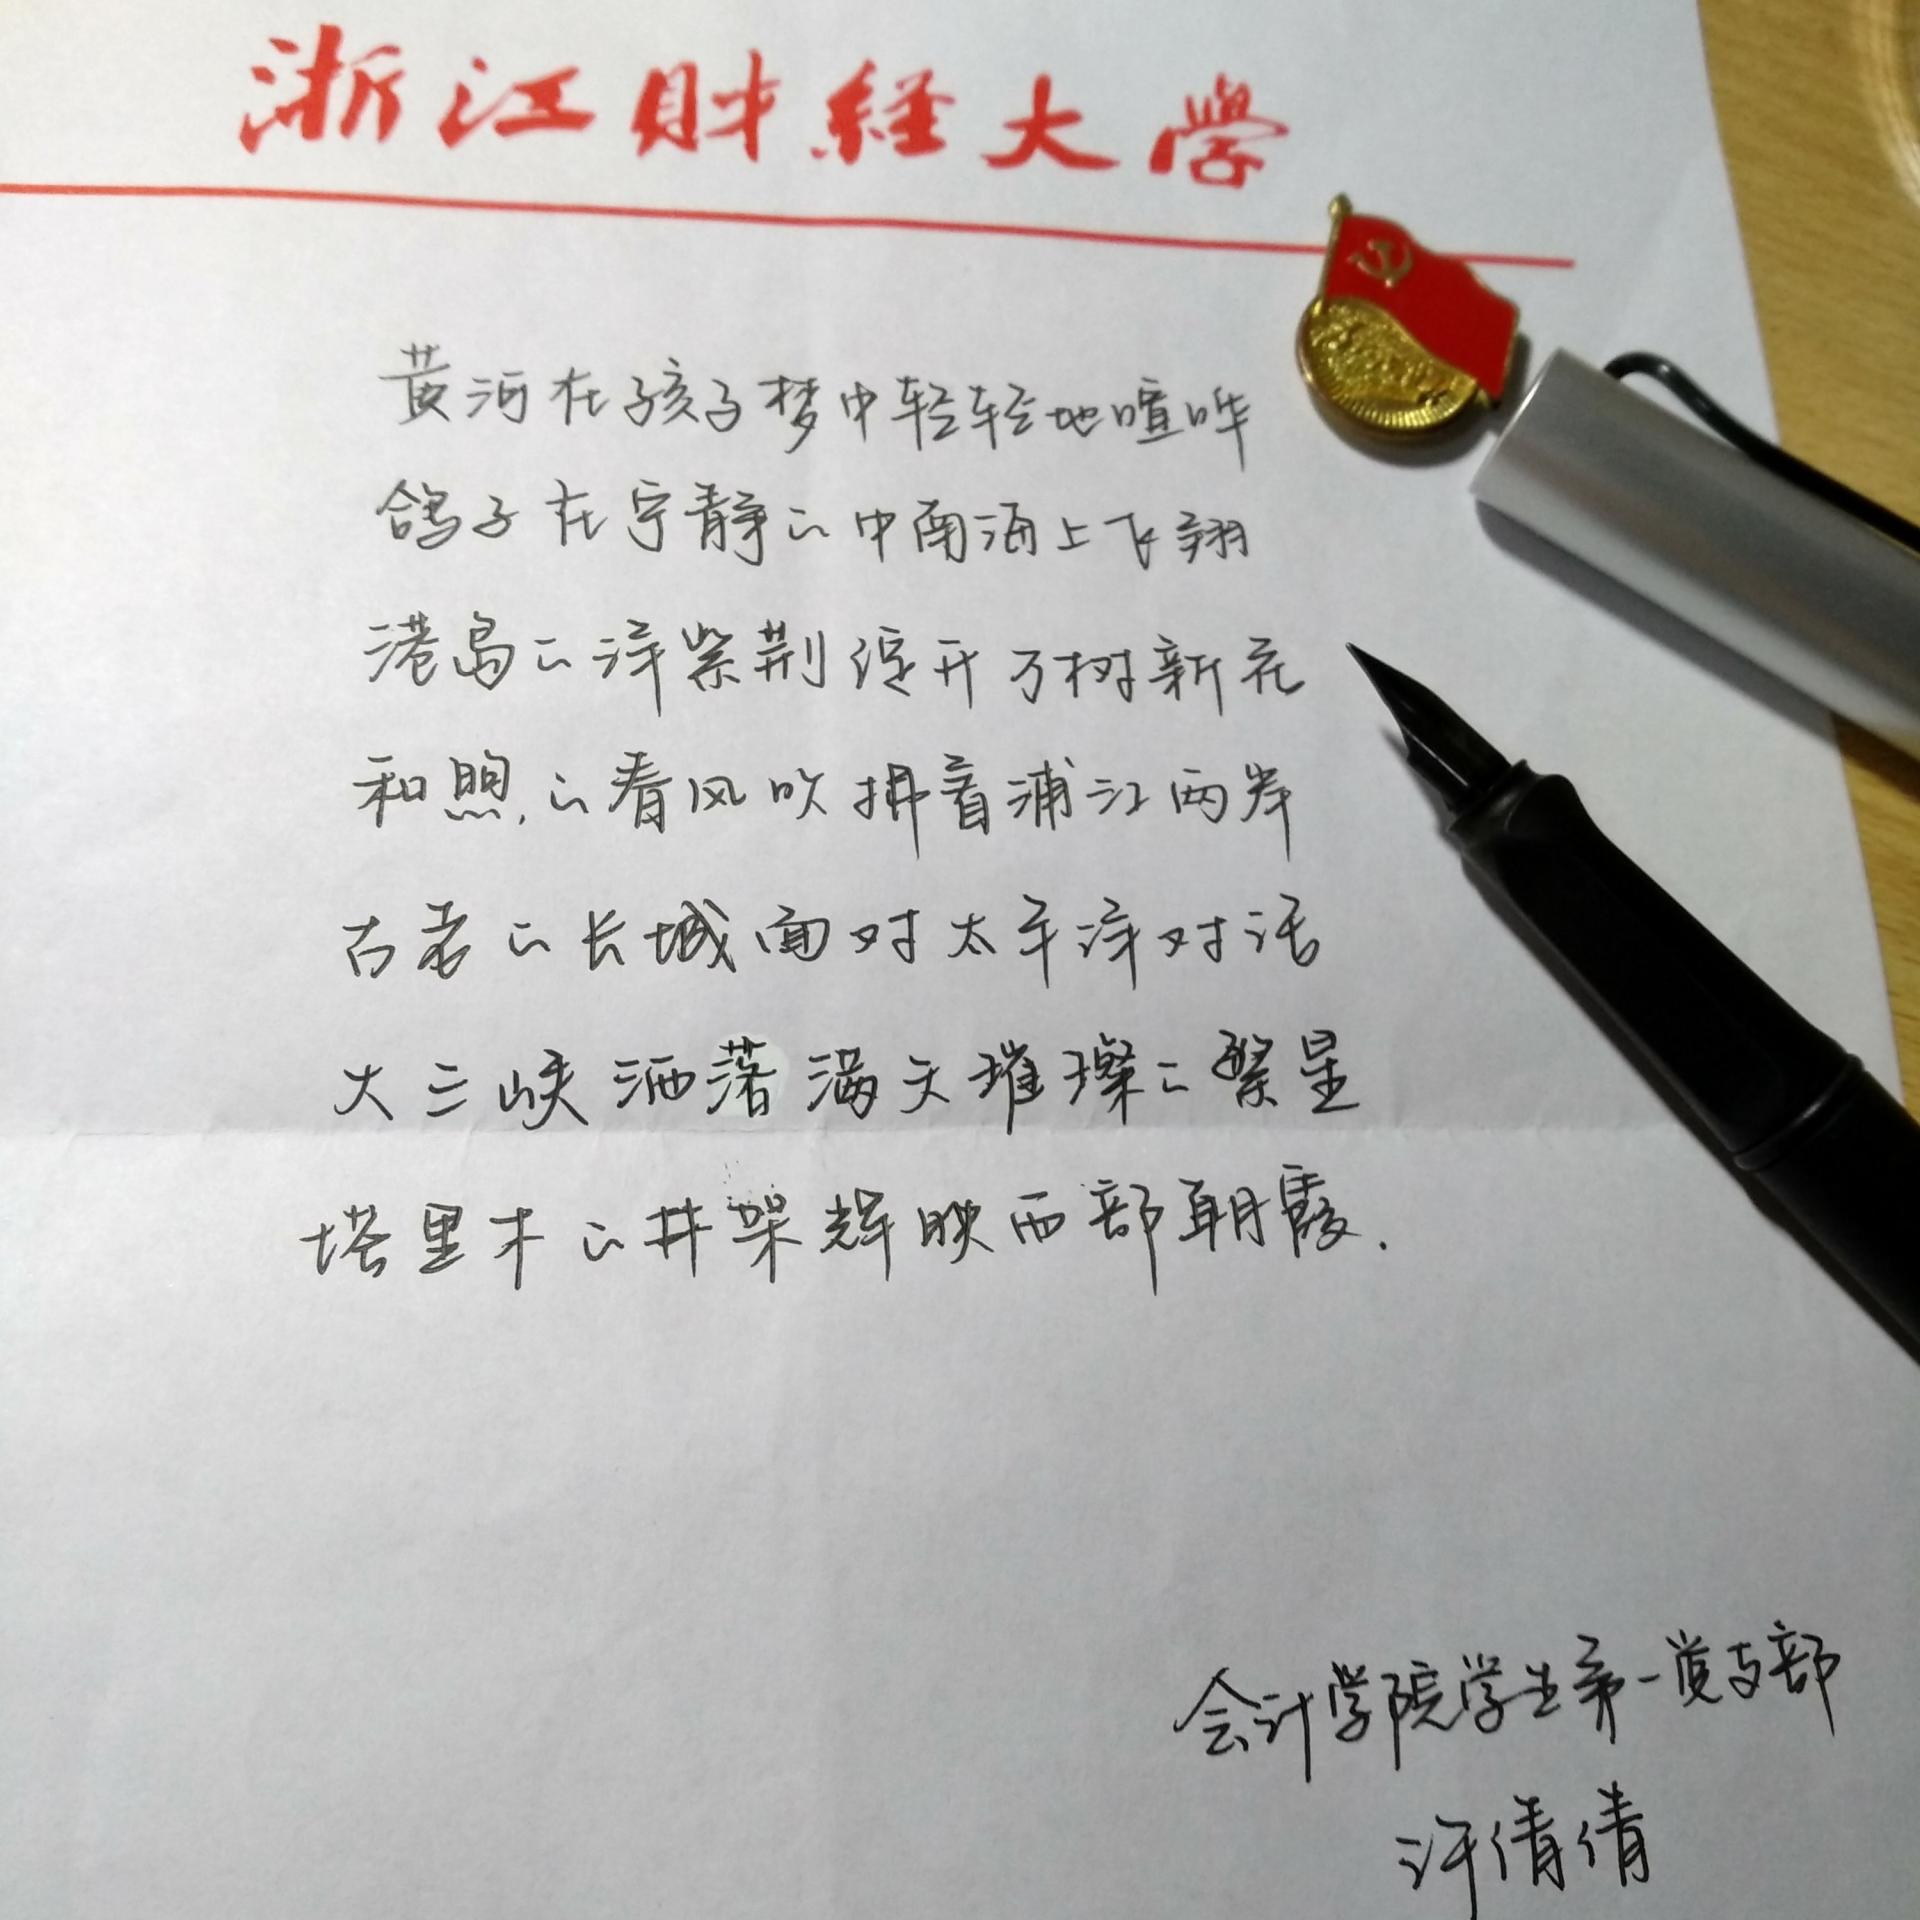 浙江财经大学
黄河在孩子梦中轻轻地喧哗
鸽子在宁静的中南海上飞翔
港岛的洋紫荆绽开万树新花
和煦的春风吹拂着浦江两岸
古老的长城面对太平洋对话
大三峡洒落满天璀璨的繁星
塔里木的井架辉映西部朝霞.
会计学院学生第一党支部
许倩倩